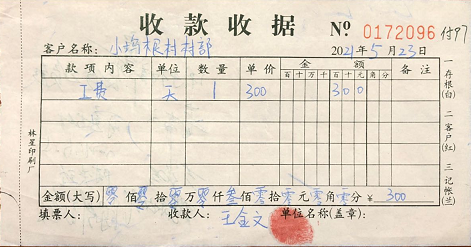 收款收据 № 0172096 付97
客户名称：小坞根村村部 2021年5月23日
款项内容 单位 数量 单价 金额 备注
百十万千百十元角分
工费 天 1 300 300
金额（大写）零佰零拾零万零仟叁佰零拾零元零角零分 ￥ 300
填票人： 收款人：王金文 单位名称（盖章）：
一存根(白) 二客户(红) 三记帐(兰)
林星印刷厂